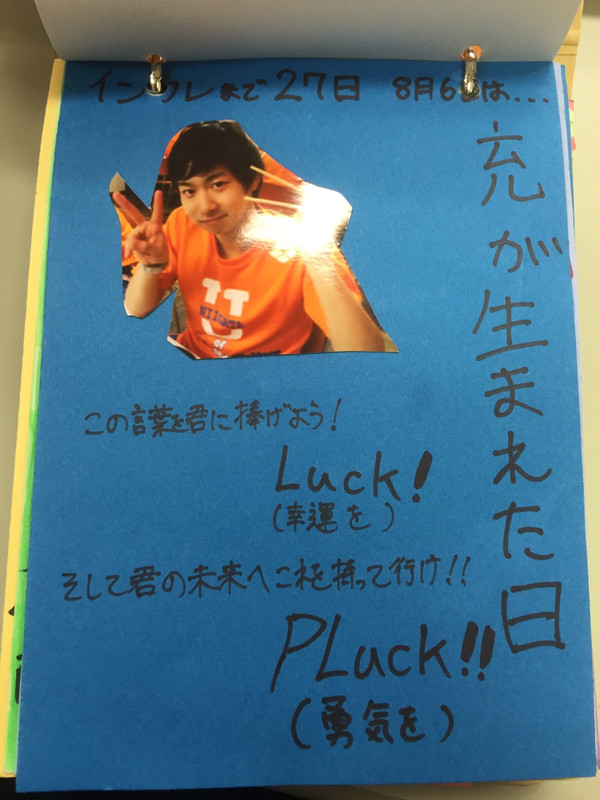 インカレまで27日 8月6日は...
充が生まれた日
U
NIIGATA
of
この言葉を君に捧げよう!
Luck!
(幸運を)
そして君の未来へこれを持って行け!!
PLuck!!
(勇気を)